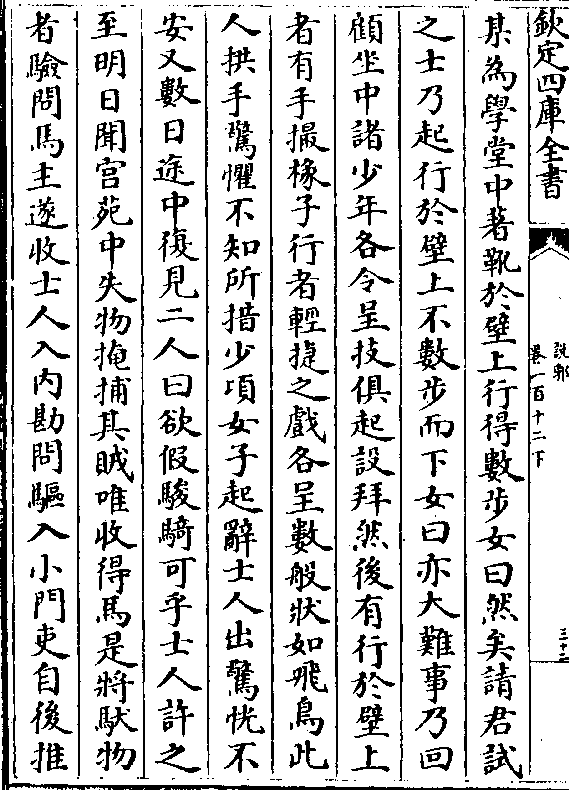 欽定四庫全書
說郛
卷一百十二下
三十二
某為學堂中著靴於壁上行得數步女曰然矣請君試
之士乃起行於壁上不數步而下女曰亦大難事乃回
顧坐中諸少年各令呈技俱起設拜然後有行於壁上
者有手撮椽子行者輕捷之戲各呈數般狀如飛鳥此
人拱手驚懼不知所措少項女子起辭士人出驚恍不
安又數日途中復見二人曰欲假駿騎可乎士人許之
至明日聞宫苑中失物掩捕其賊唯收得馬是將馱物
者驗問馬主遂收士人入内勘問驅入小門吏自後推